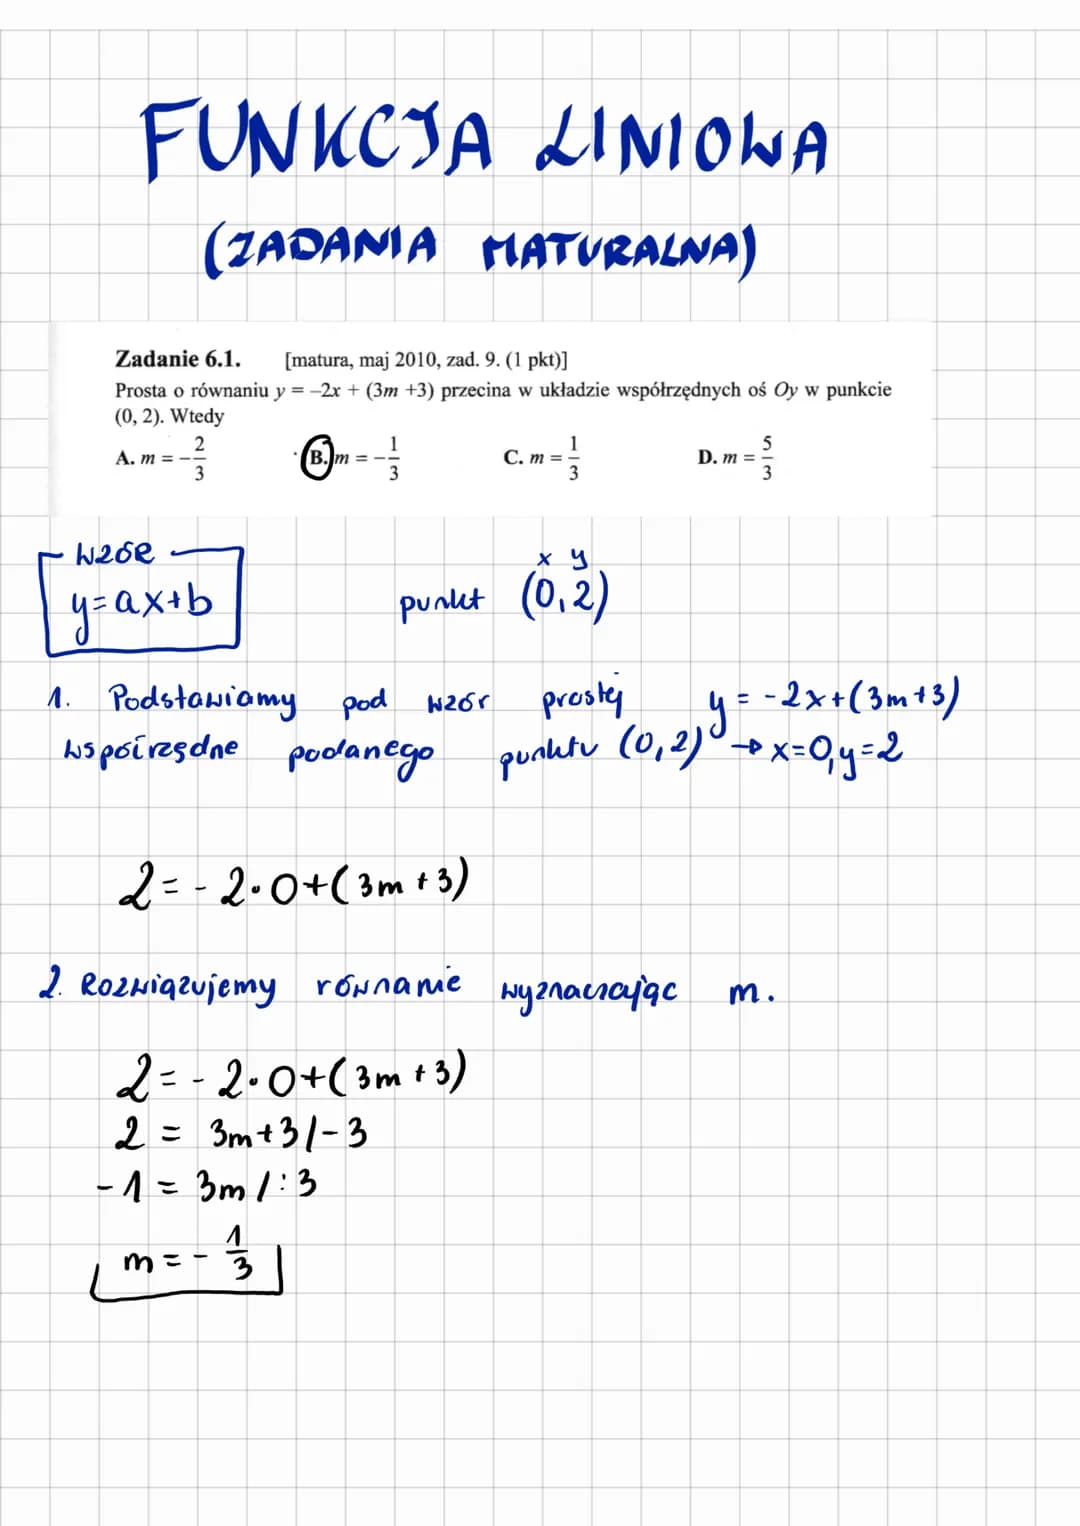 FUNKCJA LINIOWA
(ZADANIA MATURALNA)
Zadanie 6.1. [matura, maj 2010, zad. 9. (1 pkt)]
Prosta o równaniu y = –2x + (3m +3) przecina w układzie współrzędnych oś Oy w punkcie
(0, 2). Wtedy
A. m = -2/3 B. m = -1/3 C. m = 1/3 D. m = 5/3
wzór
y=ax+b
x y
punkt (0,2)
1. Podstawiamy pod wzór prostej y = -2x+(3m+3)
współrzędne podanego punktu (0,2) → x=0, y=2
2=-2·0+(3m+3)
2. Rozwiązujemy równanie wyznaczając m.
2=-2·0+(3m+3)
2 = 3m+3/-3
-1 = 3m /:3
m=-1/3